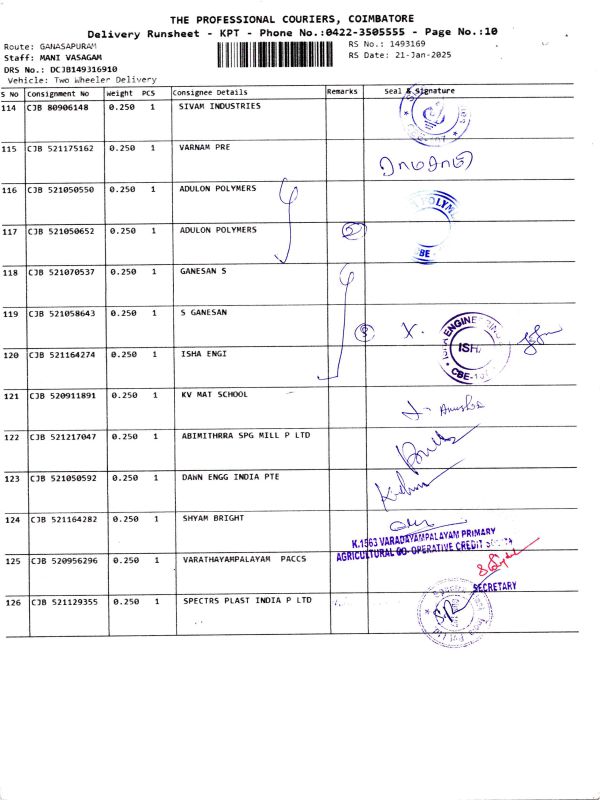 THE PROFESSIONAL COURIERS, COIMBATORE
Delivery Runsheet - KPT - Phone No.:0422-3505555 - Page No.:10
Route: GANASAPURAM
RS No.: 1493169
Staff: MANI VASAGAM
RS Date: 21-Jan-2025
DRS No.: DCJB149316910
Vehicle: Two Wheeler Delivery
S No Consignment No Weight PCS Consignee Details Remarks Seal & Signature
114 CJB 80906148 0.250 1 SIVAM INDUSTRIES
115 CJB 521175162 0.250 1 VARNAM PRE
116 CJB 521050550 0.250 1 ADULON POLYMERS
117 CJB 521050652 0.250 1 ADULON POLYMERS 2
118 CJB 521070537 0.250 1 GANESAN S
119 CJB 521058643 0.250 1 S GANESAN
120 CJB 521164274 0.250 1 ISHA ENGI
ISHA ENGINEERING
ISHA
121 CJB 520911891 0.250 1 KV MAT SCHOOL
122 CJB 521217047 0.250 1 ABIMITHRRA SPG MILL P LTD
123 CJB 521050592 0.250 1 DANN ENGG INDIA PTE
124 CJB 521164282 0.250 1 SHYAM BRIGHT
K.1563 VARADAYAMPALAYAM PRIMARY
AGRICULTURAL CO-OPERATIVE CREDIT
125 CJB 520956296 0.250 1 VARATHAYAMPALAYAM PACCS
SECRETARY
126 CJB 521129355 0.250 1 SPECTRS PLAST INDIA P LTD